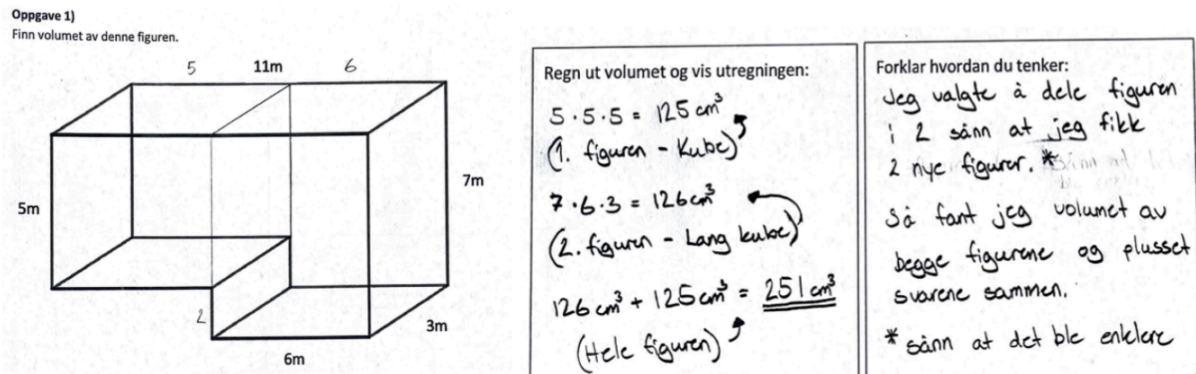 Oppgave 1)
Finn volumet av denne figuren.
5 11m 6
5m
7m
2
3m
6m
Regn ut volumet og vis utregningen:
5 · 5 · 5 = 125 cm³
(1. figuren - Kube)
7 · 6 · 3 = 126 cm³
(2. figuren - Lang kube)
126 cm³ + 125 cm³ = 251 cm³
(Hele figuren)
Forklar hvordan du tenker:
Jeg valgte å dele figuren
i 2 sånn at jeg fikk
2 nye figurer. *
Så fant jeg volumet av
begge figurene og plusset
svarene sammen.
* sånn at det ble enklere